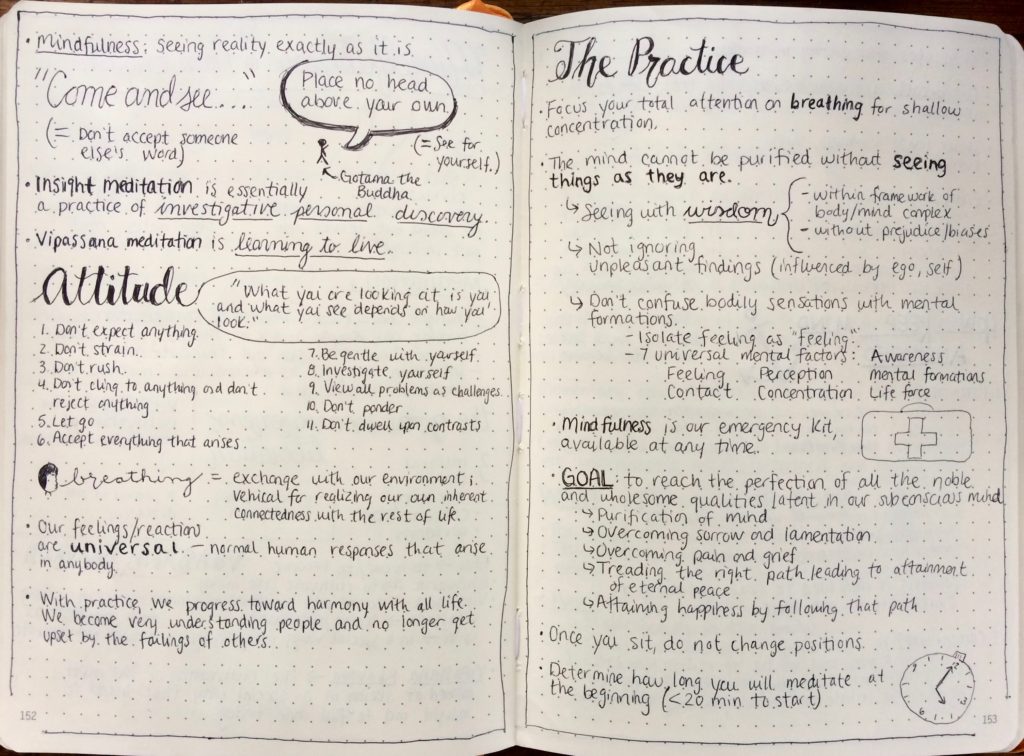 • Mindfulness: seeing reality exactly as it is
"Come and see...."
(= Don't accept someone
else's word)
Place no head
above your own
(= See for
yourself.)
Gotama the
Buddha
• Insight meditation is essentially
a practice of investigative personal discovery.
• Vipassana meditation is learning to live.
Attitude
"What you are looking at is you
and what you see depends on how you
look."
1. Don't expect anything.
2. Don't strain.
3. Don't rush.
4. Don't cling to anything and don't
reject anything
5. Let go
6. Accept everything that arises.
7. Be gentle with yourself.
8. Investigate yourself
9. View all problems as challenges.
10. Don't ponder
11. Don't dwell upon contrasts
breathing = exchange with our environment;
vehical for realizing our own inherent
connectedness with the rest of life.
• Our feelings/reactions
are universal – normal human responses that arise
in anybody.
• With practice, we progress toward harmony with all life.
We become very understanding people and no longer get
upset by the failings of others.
152
The Practice
• Focus your total attention on breathing for shallow
concentration.
• The mind cannot be purified without seeing
things as they are.
↳ Seeing with wisdom { - within framework of
body/mind complex
- without prejudice/biases
↳ Not ignoring
unpleasant findings (influenced by ego, self)
↳ Don't confuse bodily sensations with mental
formations.
- Isolate feeling as "feeling."
- 7 universal mental factors: Awareness
Feeling Perception mental formations
Contact Concentration Life force
• Mindfulness is our emergency kit,
available at any time.
• GOAL: to reach the perfection of all the noble
and wholesome qualities latent in our subconscious mind
↳ Purification of mind
↳ Overcoming sorrow and lamentation
↳ Overcoming pain and grief
↳ Treading the right path leading to attainment
of eternal peace
↳ Attaining happiness by following that path
• Once you sit, do not change positions.
• Determine how long you will meditate at
the beginning (<20 min to start)
6
153